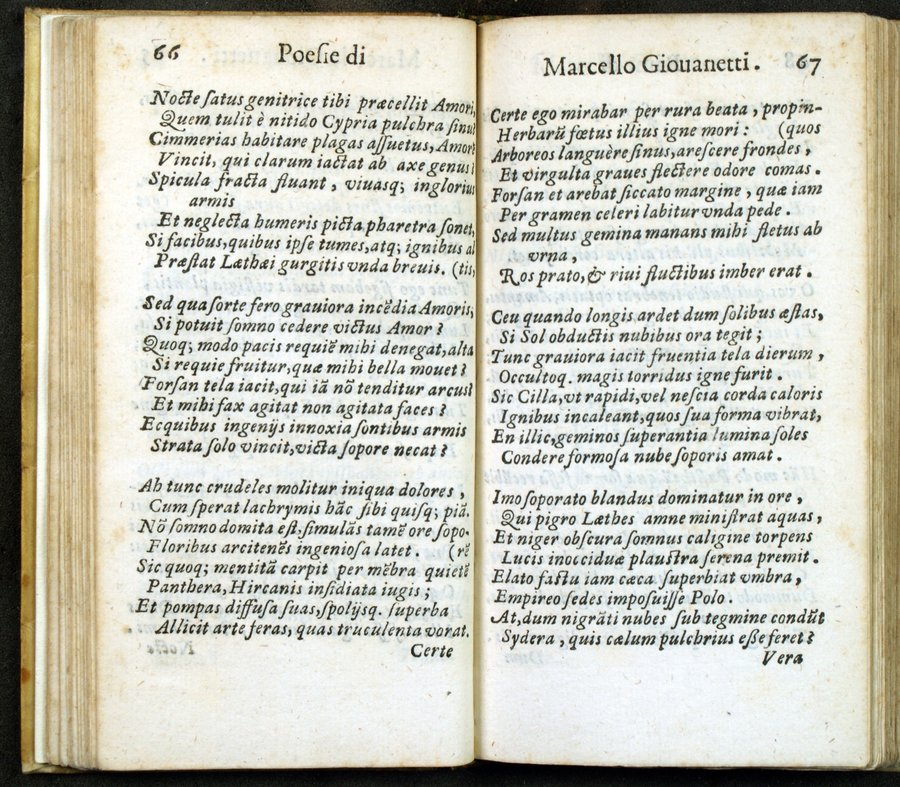 66 Poeſie di
Nocte ſatus genitrice tibi præcellit Amori,
Quem tulit è nitido Cypria pulchra ſinu
Cimmerias habitare plagas aſſuetus, Amorē
Vincit, qui clarum iactat ab axe genus?
Spicula fracta fluant, viuasq; inglorius
armis
Et neglecta humeris picta pharetra ſonet,
Si facibus, quibus ipſe tumes, atq; ignibus al
Præſtat Læthæi gurgitis vnda breuis. (tis,
Sed qua ſorte fero grauiora incēdia Amoris,
Si potuit ſomno cedere victus Amor?
Quoq; modo pacis requiē mihi denegat, alta
Si requie fruitur, quæ mihi bella mouet?
Forſan tela iacit, qui iā nō tenditur arcus?
Et mihi fax agitat non agitata faces?
Ecquibus ingenijs innoxia ſontibus armis
Strata ſolo vincit, victa ſopore necat?
Ah tunc crudeles molitur iniqua dolores,
Cum ſperat lachrymis hāc ſibi quiſq; piā.
Nō ſomno domita eſt: ſimulās tamē ore ſopo-
Floribus arcitenēs ingenioſa latet. (rē
Sic quoq; mentitā carpit per mēbra quietē
Panthera, Hircanis inſidiata iugis;
Et pompas diffuſa suas, ſpolijsq. ſuperba
Allicit arte feras, quas truculenta vorat.
Certe
Marcello Giouanetti. 67
Certe ego mirabar per rura beata, propin-
Herbarū fœtus illius igne mori: (quos
Arboreos languère ſinus, areſcere frondes,
Et virgulta graues flectere odore comas.
Forſan et arebat ſiccato margine, quæ iam
Per gramen celeri labitur vnda pede.
Sed multus gemina manans mihi fletus ab
vrna,
Ros prato, & riui fluctibus imber erat.
Ceu quando longis ardet dum ſolibus æſtas,
Si Sol obductis nubibus ora tegit;
Tunc grauiora iacit fruentia tela dierum,
Occultoq. magis torridus igne furit.
Sic Cilla, vt rapidi, vel neſcia corda caloris
Ignibus incaleant, quos ſua forma vibrat,
En illic, geminos ſuperantia lumina ſoles
Condere formoſa nube ſoporis amat.
Imo ſoporato blandus dominatur in ore,
Qui pigro Læthes amne miniſtrat aquas,
Et niger obſcura ſomnus caligine torpens
Lucis inocciduæ plauſtra ſerena premit.
Elato faſtu iam cæca ſuperbiat vmbra,
Empireo ſedes impoſuiſſe Polo:
At, dum nigrāti nubes ſub tegmine condūt
Sydera, quis cælum pulchrius eſſe feret?
Vera